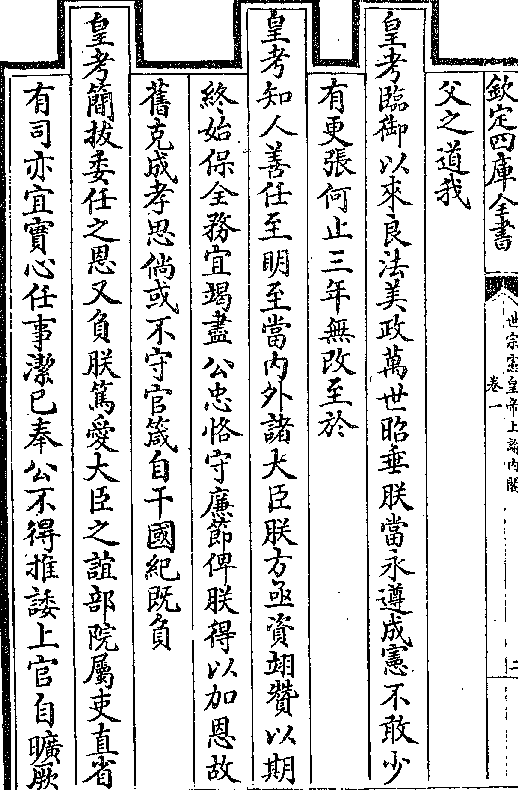 欽定四庫全書
世宗憲皇帝上諭內閣
卷一
二
父之道我
皇考臨御以來良法美政萬世昭垂朕當永遵成憲不敢少
有更張何止三年無改至於
皇考知人善任至明至當內外諸大臣朕方亟資翊贊以期
終始保全務宜竭盡公忠恪守廉節俾朕得以加恩故
舊克成孝思倘或不守官箴自干國紀既負
皇考簡拔委任之恩又負朕篤愛大臣之誼部院屬吏直省
有司亦宜實心任事潔己奉公不得推諉上官自曠厥